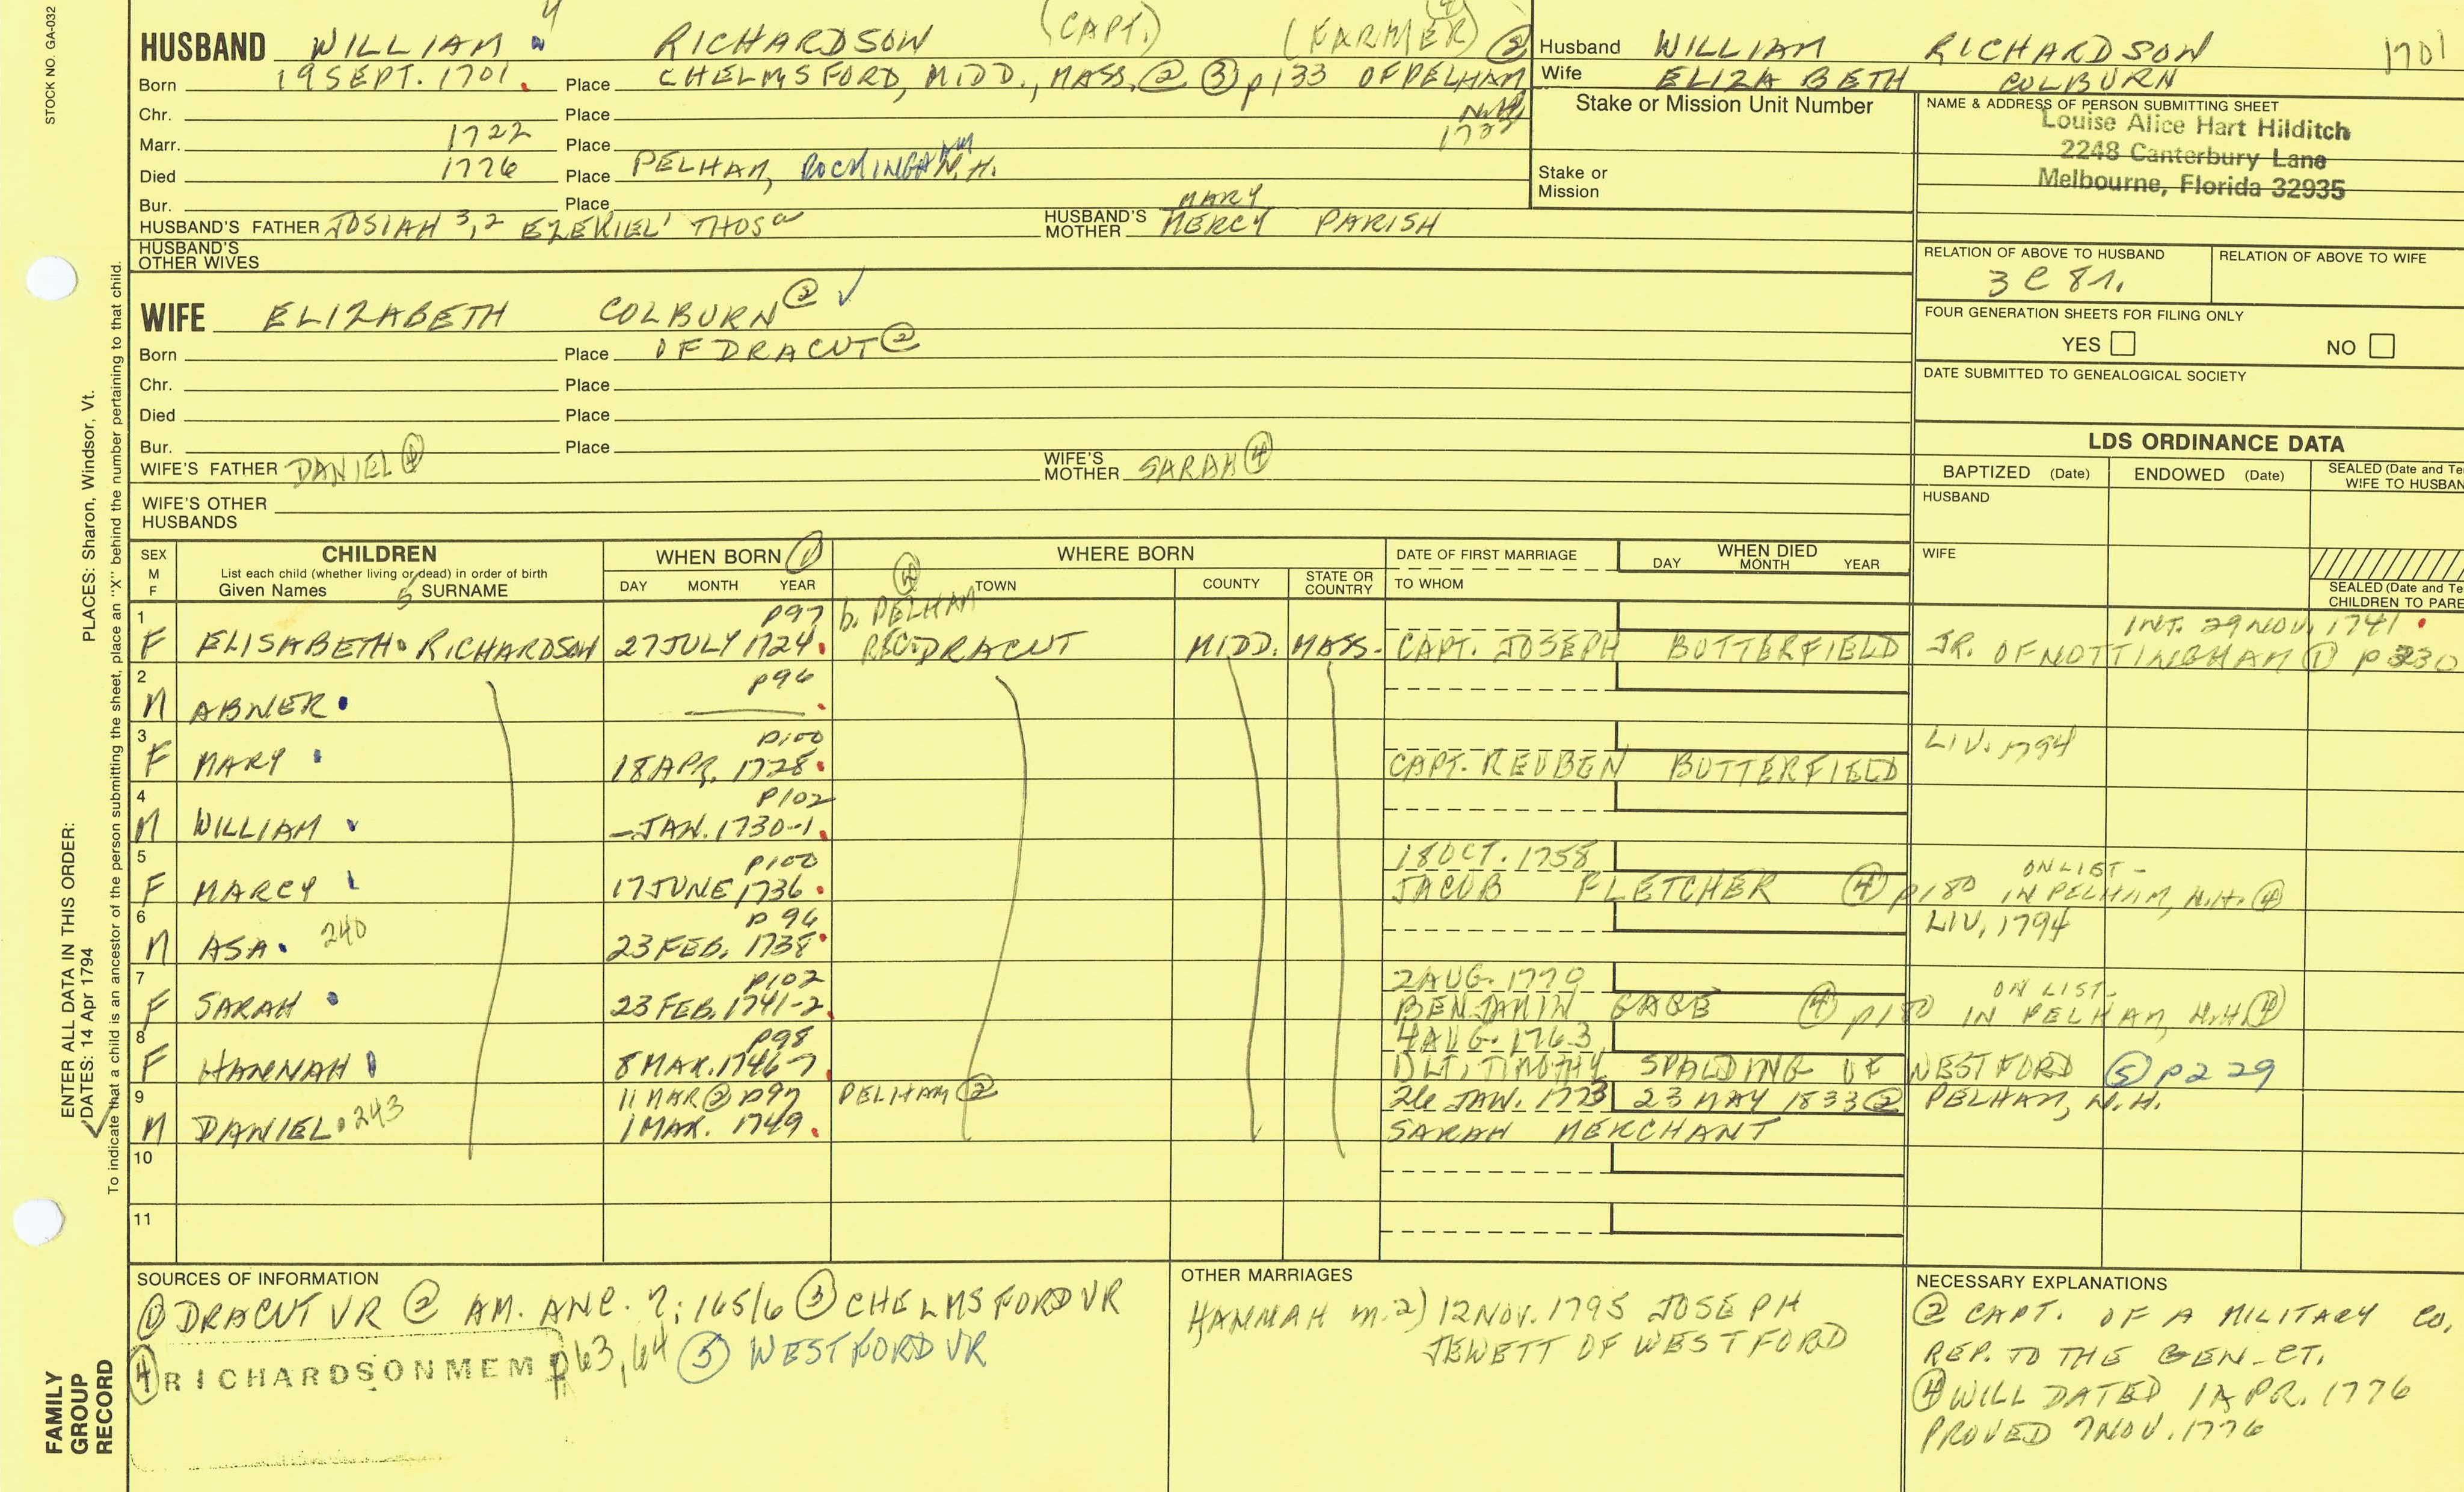 STOCK NO. GA-032
HUSBAND WILLIAM 4 RICHARDSON (CAPT.) (FARMER) ④ ②
Born 19 SEPT. 1701. Place CHELMSFORD, MIDD., MASS. ② ③ p133 OF PELHAM N.H.
Chr. Place
Marr. 1722 Place
Died 1776 Place PELHAM, ROCKINGHAM N.H.
Bur. Place
HUSBAND'S FATHER JOSIAH 3,2 EZEKIEL1 THOSa HUSBAND'S MOTHER MARY MERCY PARISH
HUSBAND'S OTHER WIVES
Husband WILLIAM RICHARDSON 1701
Wife ELIZABETH COLBURN
Stake or Mission Unit Number
Stake or Mission
NAME & ADDRESS OF PERSON SUBMITTING SHEET
Louise Alice Hart Hilditch
2248 Canterbury Lane
Melbourne, Florida 32935
RELATION OF ABOVE TO HUSBAND RELATION OF ABOVE TO WIFE
3 C 8 r.
FOUR GENERATION SHEETS FOR FILING ONLY
YES NO
DATE SUBMITTED TO GENEALOGICAL SOCIETY
WIFE ELIZABETH COLBURN ② ✓
Born Place OF DRACUT ②
Chr. Place
Died Place
Bur. Place
WIFE'S FATHER DANIEL ④ WIFE'S MOTHER SARAH ④
WIFE'S OTHER HUSBANDS
LDS ORDINANCE DATA
BAPTIZED (Date) ENDOWED (Date) SEALED (Date and Te
WIFE TO HUSBAN
HUSBAND
WIFE
SEALED (Date and Te
CHILDREN TO PARE
SEX M F CHILDREN WHEN BORN ① WHERE BORN DATE OF FIRST MARRIAGE WHEN DIED
List each child (whether living or dead) in order of birth
Given Names 5 SURNAME DAY MONTH YEAR TOWN COUNTY STATE OR COUNTRY TO WHOM DAY MONTH YEAR
1 p97 b. PELHAM INT. 29 NOV. 1741
F ELISABETH RICHARDSON 27 JULY 1724. REC. DRACUT MIDD. MASS. CAPT. JOSEPH BUTTERFIELD JR. OF NOTTINGHAM ① p 330
2 p96
M ABNER
3 p100 LIV. 1794
F MARY 18 APR. 1728. CAPT. REUBEN BUTTERFIELD
4 p102
M WILLIAM – JAN. 1730-1.
5 p100 18 OCT. 1758 ON LIST –
F MARCY 17 JUNE 1736. JACOB FLETCHER ④ p180 IN PELHAM, N.H. ④
6 p 96 LIV. 1794
M ASA 240 23 FEB. 1738.
7 p102 2 AUG. 1770 ON LIST –
F SARAH 23 FEB. 1741-2. BENJAMIN GAGE ④ p180 IN PELHAM, N.H. ④
8 p98 4 AUG. 1763
F HANNAH 8 MAR. 1746-7. 1) LT. TIMOTHY SPALDING OF WESTFORD ⑤ p229
9 11 MAR ② p97 PELHAM ② 26 JAN. 1773 23 MAY 1833 ② PELHAM, N.H.
M DANIEL 243 1 MAR. 1749. SARAH MERCHANT
10
11
SOURCES OF INFORMATION
① DRACUT VR ② AM. ANC. 7: 165/6 ③ CHELMSFORD VR
④ RICHARDSON MEM p63, 64 ⑤ WESTFORD VR
OTHER MARRIAGES
HANNAH m. 2) 12 NOV. 1795 JOSEPH
JEWETT OF WESTFORD
NECESSARY EXPLANATIONS
② CAPT. OF A MILITARY CO.
REP. TO THE GEN. CT.
④ WILL DATED 1 APR. 1776
PROVED 7 NOV. 1776
FAMILY GROUP RECORD
ENTER ALL DATA IN THIS ORDER:
DATES: 14 Apr 1794 PLACES: Sharon, Windsor, Vt.
To indicate that a child is an ancestor of the person submitting the sheet, place an "X" behind the number pertaining to that child.